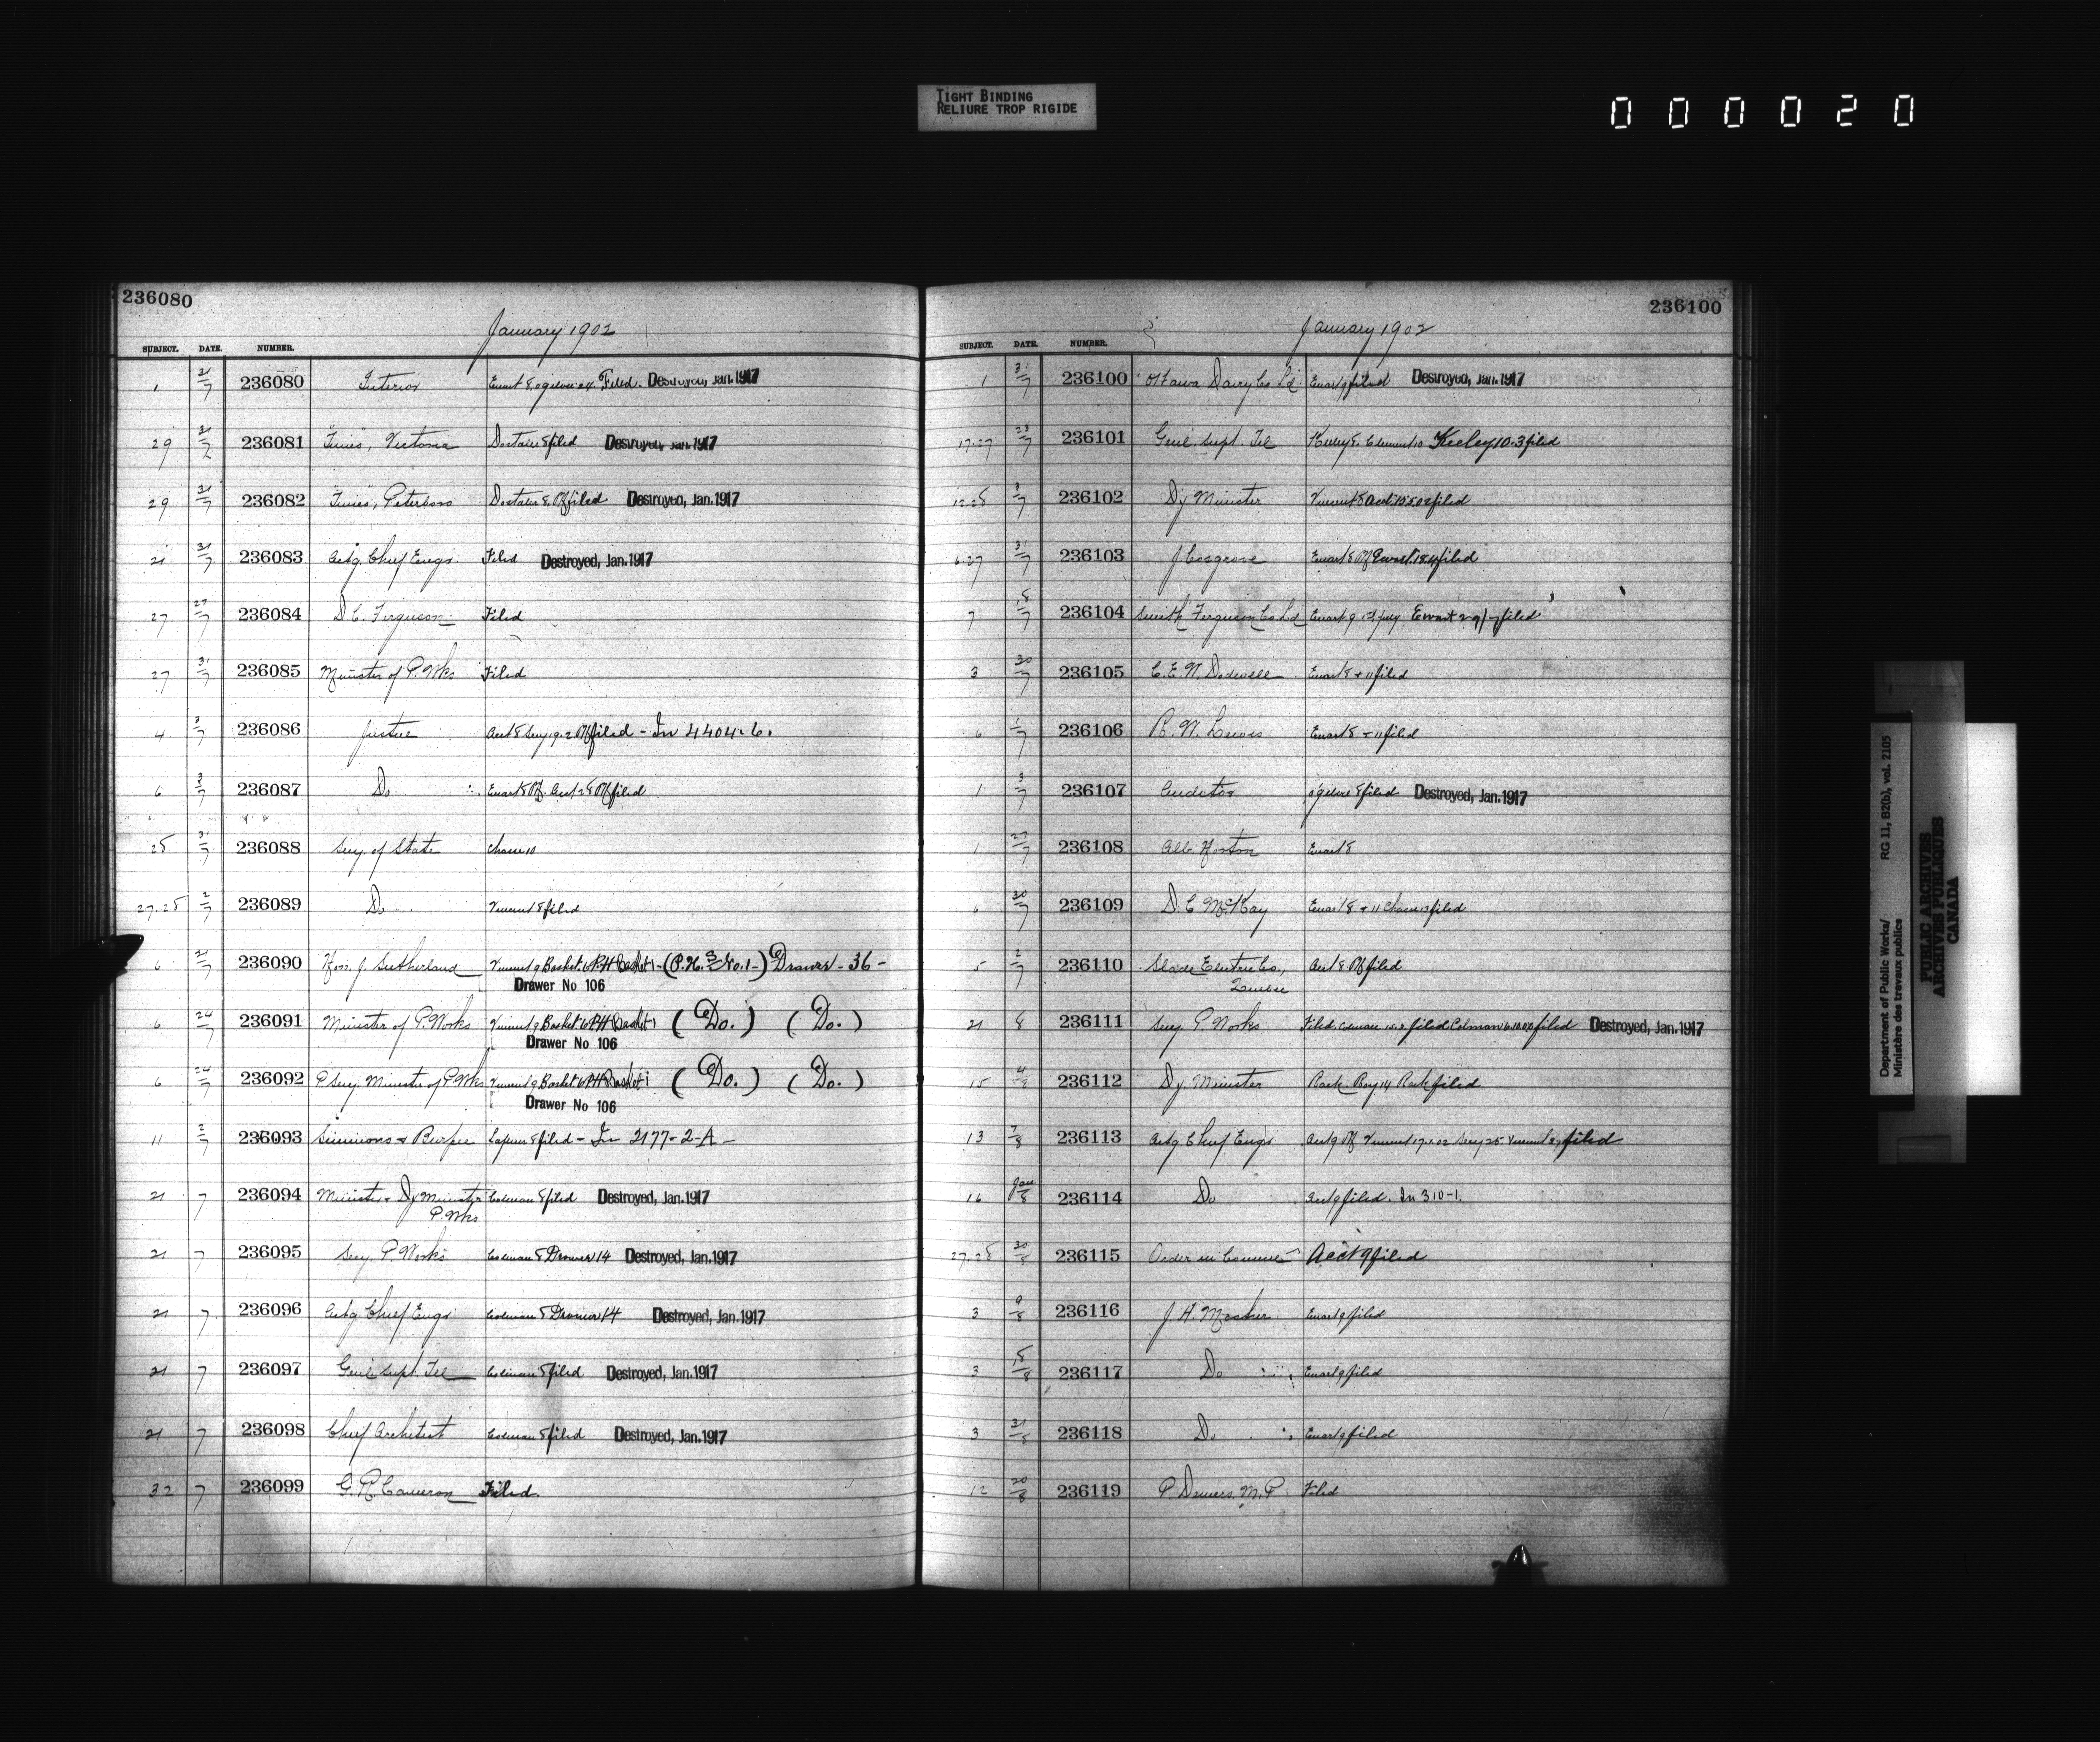 TIGHT BINDING
RELIURE TROP RIGIDE
000020
236080
January 1902
SUBJECT. DATE. NUMBER.
1 31/7 236080 Interior Filed. Destroyed, Jan. 1917
29 31/7 236081 "Times", Victoria filed Destroyed, Jan. 1917
29 31/7 236082 "Times", Peterboro filed Destroyed, Jan. 1917
21 31/7 236083 Actg. Chief Engr. Filed Destroyed, Jan. 1917
27 27/7 236084 D.C. Ferguson Filed
27 31/7 236085 Minister of P. Wks Filed
4 3/7 236086 Justice filed - In 4404-6.
6 3/7 236087 Do filed
25 31/7 236088 Secy. of State Chasse 10
27.25 2/7 236089 Do Vincent 8 filed
6 21/7 236090 Hon. J. Sutherland Vincent 9 Basket 6 P.H Basket 1 - (P.H. No. 1 -) Drawer - 36 -
Drawer No 106
6 24/7 236091 Minister of P. Works Vincent 9 Basket 6 P.H Basket 1 (Do.) (Do.)
Drawer No 106
6 24/7 236092 P. Secy. Minister of P. Wks Vincent 9 Basket 6 P.H Basket 1 (Do.) (Do.)
Drawer No 106
11 2/7 236093 Simmons & Burpee filed - In 2177-2-A -
21 7 236094 Minister & Dy Minister Colman 8 filed Destroyed, Jan. 1917
P. Wks
21 7 236095 Secy. P. Works Colman 8 Drawer 14 Destroyed, Jan. 1917
21 7 236096 Actg Chief Engr Colman 8 Drawer 14 Destroyed, Jan. 1917
21 7 236097 Genl Supt. Tel Colman 8 filed Destroyed, Jan. 1917
21 7 236098 Chief Architect Colman 8 filed Destroyed, Jan. 1917
32 7 236099 G. R. Cameron Filed.
236100
January 1902
SUBJECT. DATE. NUMBER.
1 31/7 236100 Ottawa Dairy Co Ld. Ewart 9 filed Destroyed, Jan. 1917
17.27 23/7 236101 Genl. Supt. Tel Keeley 8. Keeley 10.3 filed
12.25 3/7 236102 Dy Minister Vincent 8 filed
6.27 31/7 236103 J Cosgrove Ewart 8 filed
7 15/7 236104 Smith Ferguson Co Ld Ewart 9 filed
3 30/7 236105 C. E. W. Dodwell Ewart 8 + 11 filed
6 1/7 236106 R. W. Lewis Ewart 8 + 11 filed
1 3/7 236107 Auditor Ogilvie 8 filed Destroyed, Jan. 1917
1 27/7 236108 Alb. Horton Ewart 8
6 30/7 236109 D. C. McKay Ewart 8. + 11 Chasse filed
5 2/7 236110 Slade Electric Co., Acct 8 filed
Quebec
21 8 236111 Secy. P. Works Filed. Colman filed Colman filed Destroyed, Jan. 1917
15 4/8 236112 Dy. Minister Rack. Roy 14 Rack filed
13 7/8 236113 Actg Chief Engr Acct 9 Vincent 17.1.02 Secy 25. Vincent filed
16 Jan/8 236114 Do Acct 9 filed. In 310-1.
27.25 30/8 236115 Order in Council Acct 9 filed
3 9/8 236116 J. H. Mosher Ewart 9 filed
3 15/8 236117 Do Ewart 9 filed
3 31/8 236118 Do Ewart 9 filed
12 20/8 236119 P. M.P Filed
Department of Public Works/ RG 11, B2(b), vol. 2105
Ministère des travaux publics
PUBLIC ARCHIVES
ARCHIVES PUBLIQUES
CANADA